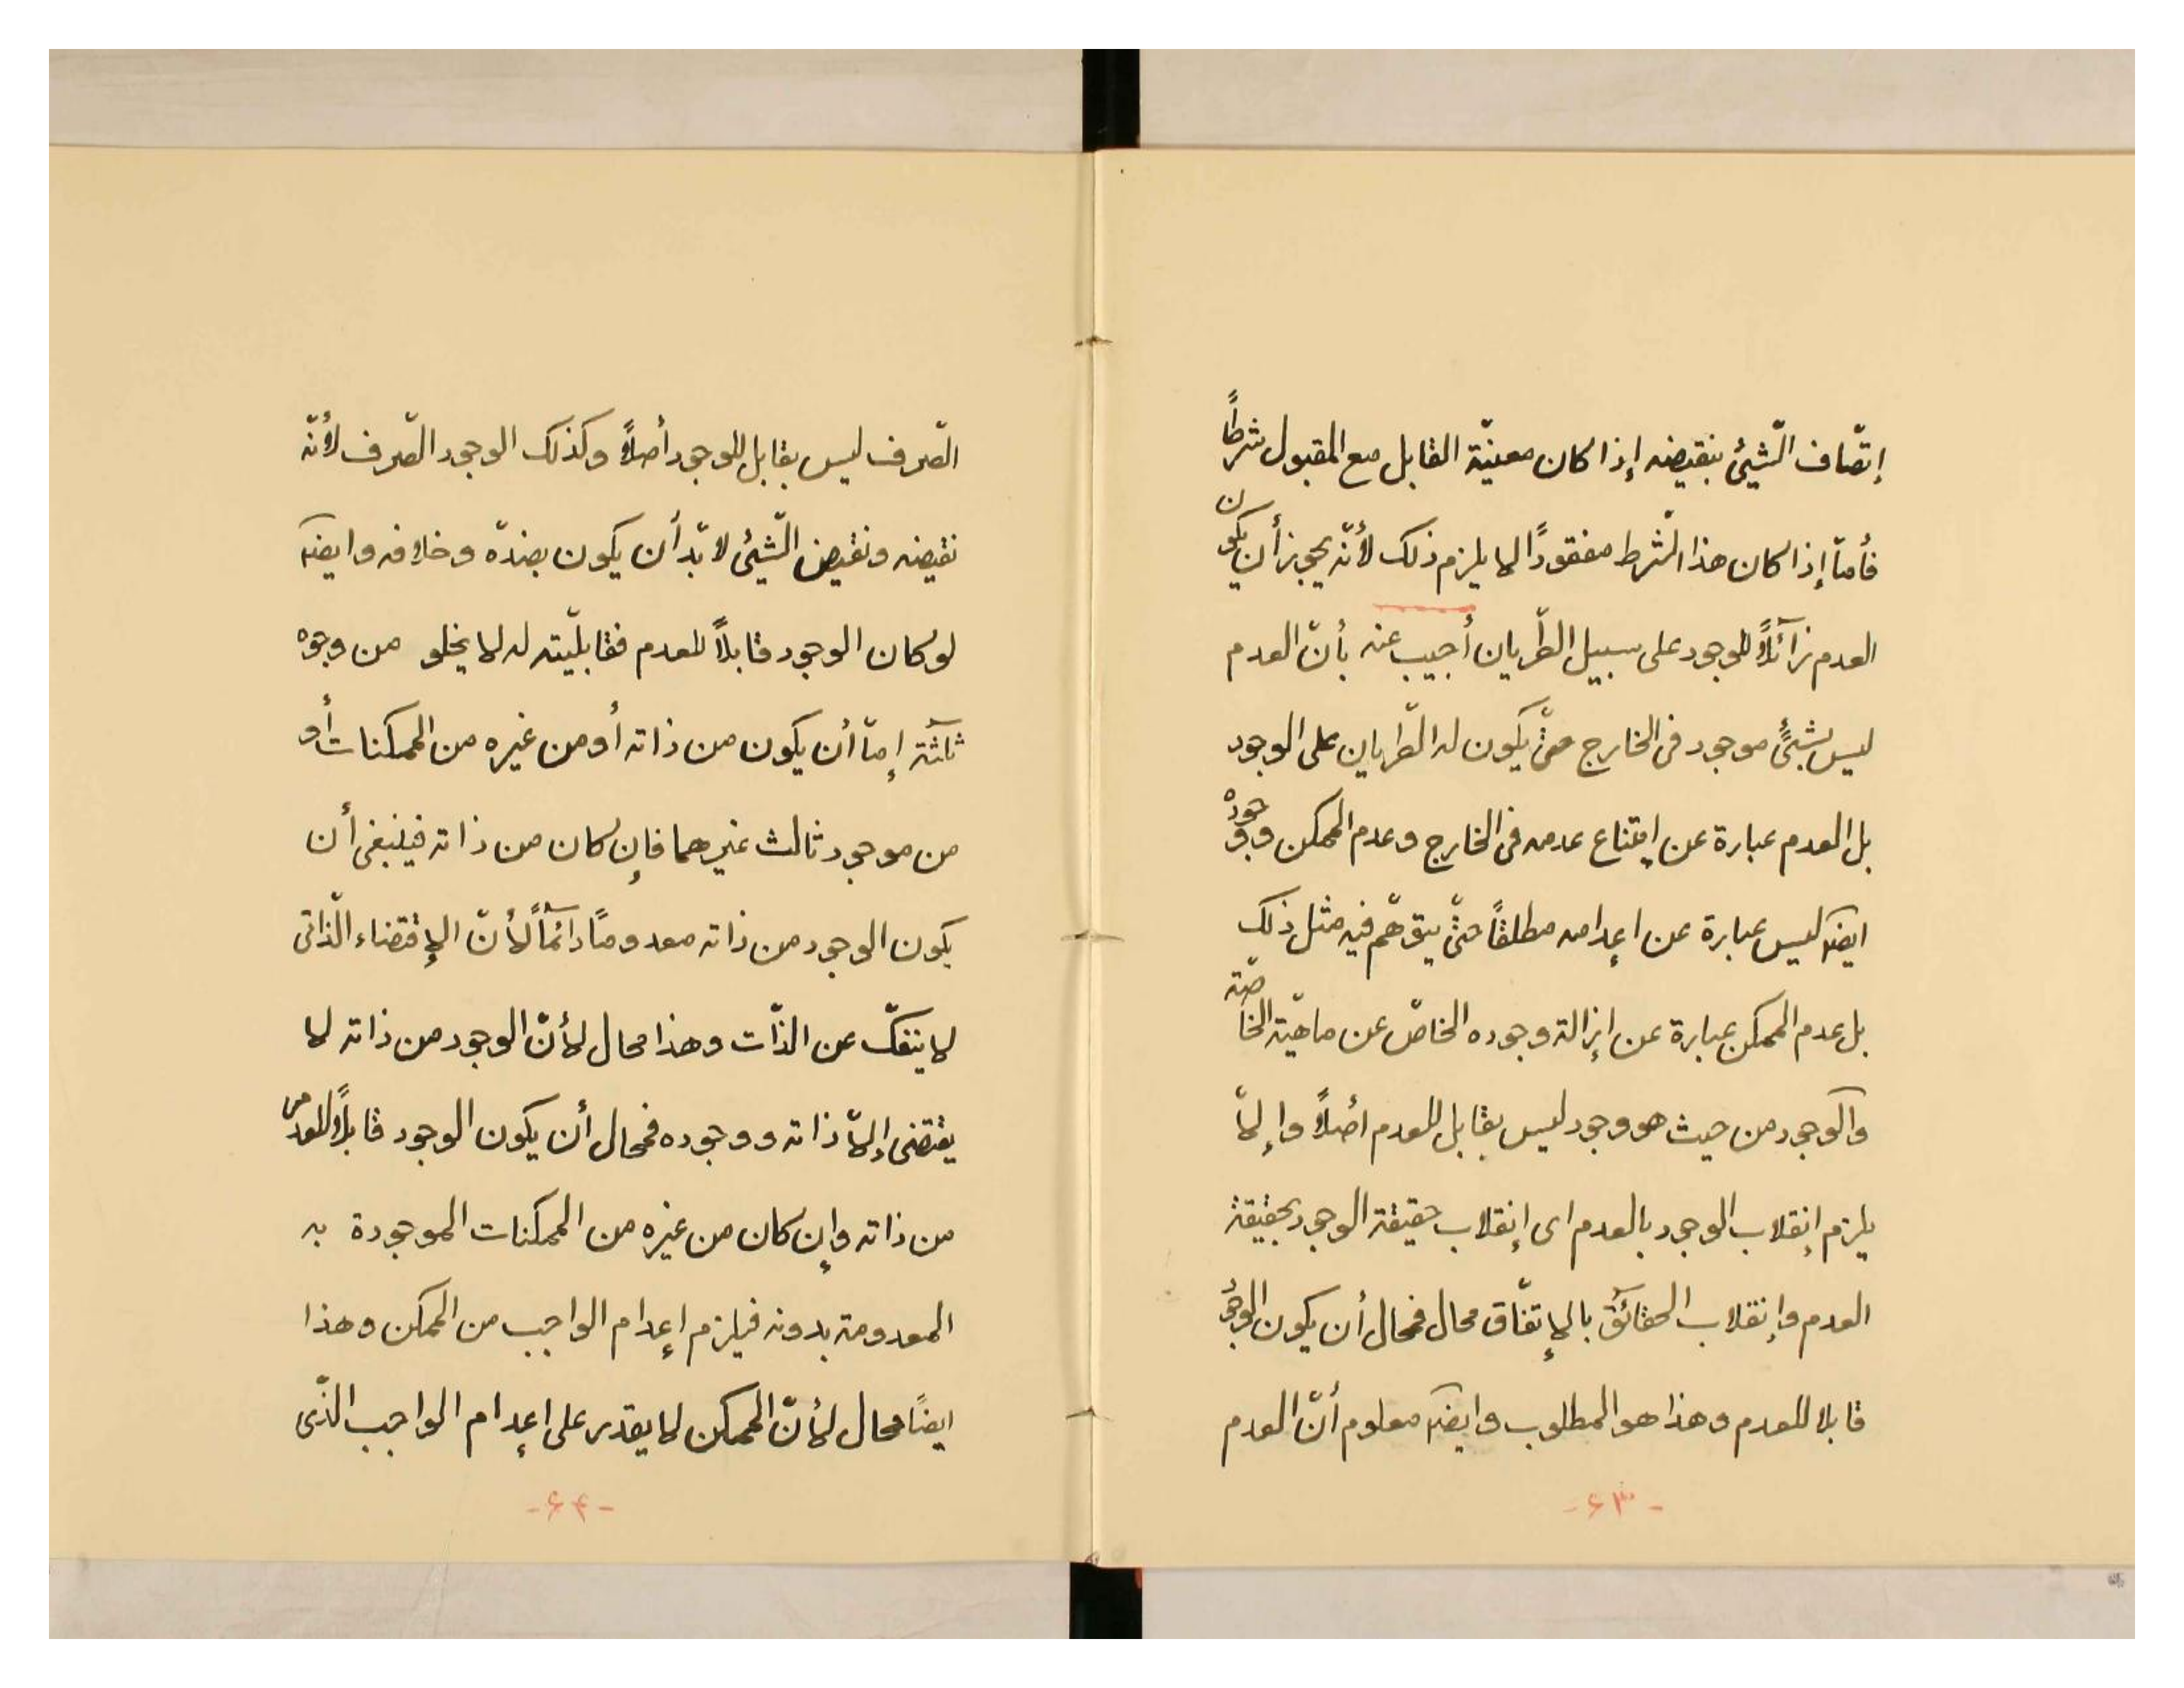 إتّصاف الشّيئ بنقيضه إذا كان معيّنة القابل مع المقبول شرطًا
فأمّا إذا كان هذا الشّرط مفقودًا لا يلزم ذلك لأنّه يجوز أن يكون
العدم زآئلًا للوجود على سبيل الطّريان أجيب عنه بأنّ العدم
ليس بشيئً موجود فى الخارج حتّى يكون له الطّريان على الوجود
بل العدم عبارة عن إمتناع عدمه فى الخارج وعدم الممكن ووجوده
ايضًا ليس عبارة عن اعدامه مطلقًا حتّى يتوهّم فيه مثل ذلك
بل عدم الممكن عبارة عن إزالة وجوده الخاصّ عن ماهيّته الخاصّة
والوجود من حيث هو وجود ليس بقابل للعدم أصلًا وإلّا
يلزم إنقلاب الوجود بالعدم اى إنقلاب حقيقة الوجود بحقيقة
العدم وإنقلاب الحقآئق بالإتفّاق محال فمحال أن يكون الوجود
قابلا للعدم وهذا هو المطلوب وايضًا معلوم أنّ العدم
-۶۳-
الصّرف ليس بقابل للوجود أصلًا وكذلك الوجود الصّرف لأنّه
نقيضه ونقيض الشّيئى لا بّد أن يكون بضدّه وخلافه وايضًا
لو كان الوجود قابلًا للعدم فقابليّته له لا يخلو من وجوه
ثلثة إمّا أن يكون من ذاته أو من غيره من الممكنات أو
من موجود ثالث غيرهما فإن كان من ذاته فينبغى أن
يكون الوجود من ذاته معدومًا دآئمًا لأنّ الإقتضاء الذّاتى
لا ينفكّ عن الذّات وهذا محال لأنّ الوجود من ذاته لا
يقتضى إلّا ذاته ووجوده فمحال أن يكون الوجود قابلًا للعدم
من ذاته وإن كان من غيره من الممكنات الموجودة به
المعدومة بدونه فيلزم إعدام الواجب من الممكن وهذا
ايضًا محال لأنّ الممكن لا يقدر على إعدام الواجب الذّى
-۶۴-